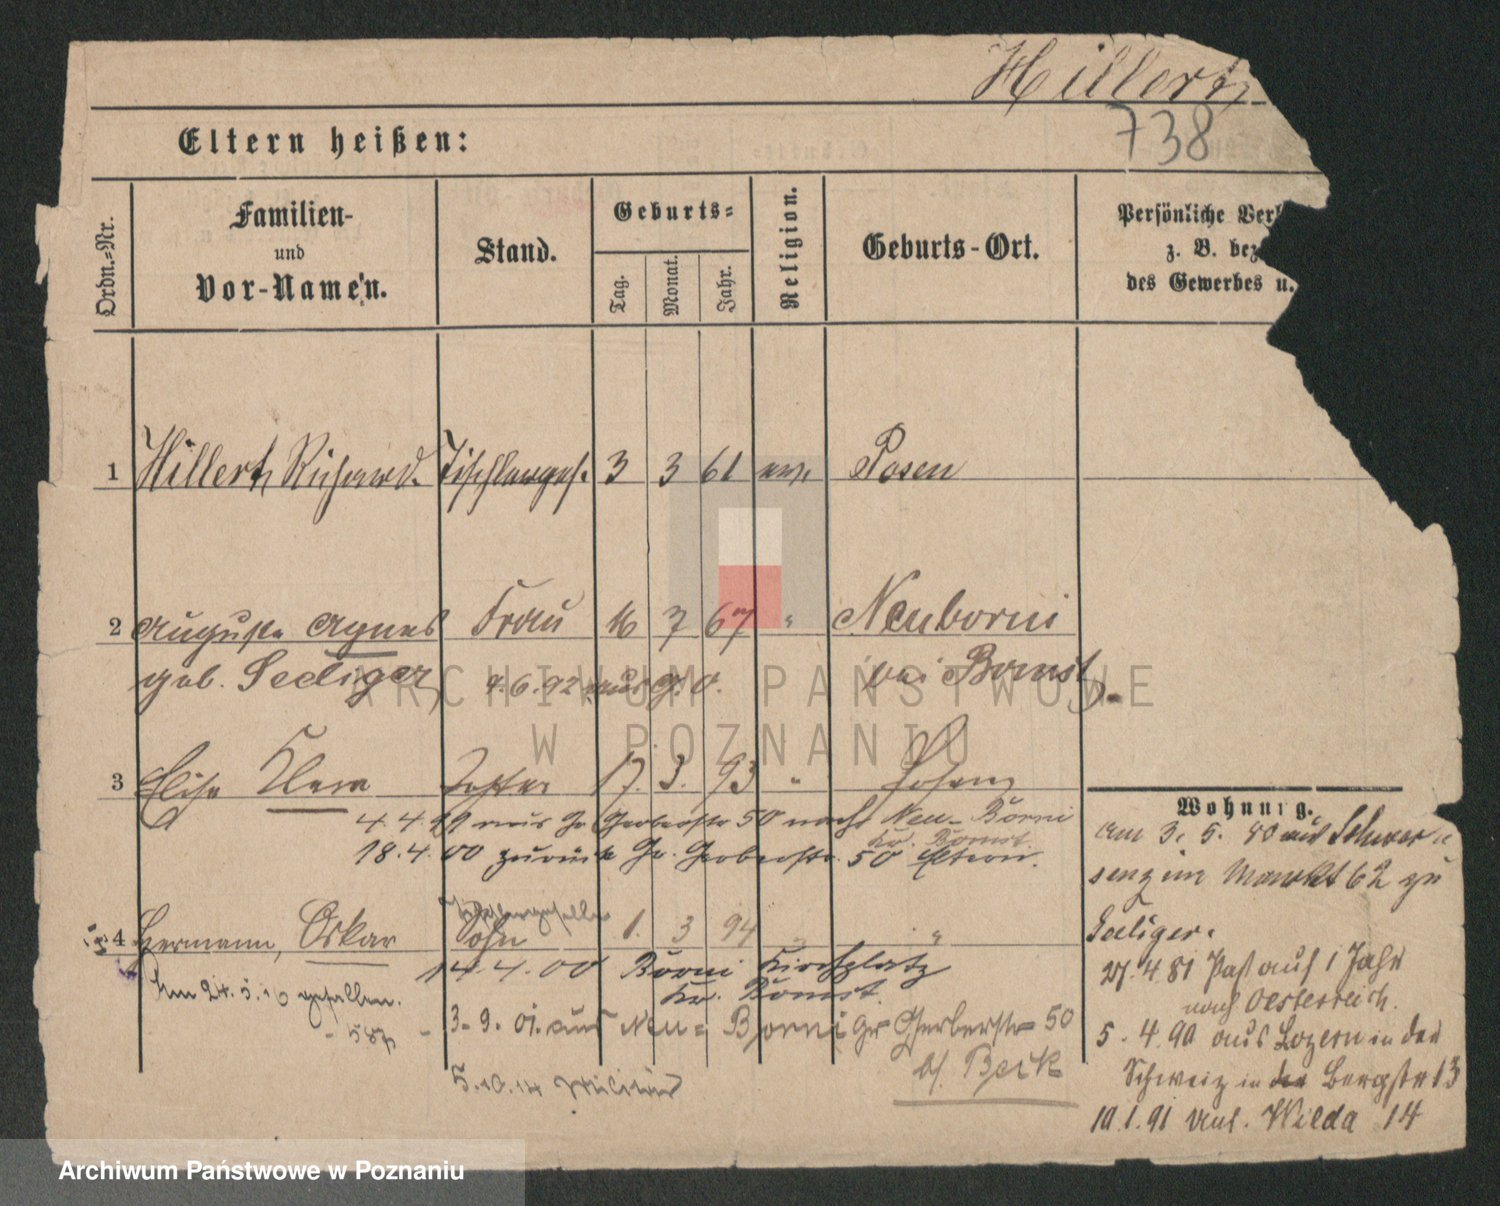 Hillert
738
Eltern heißen:
Ordn.-Nr.
Familien-
und
Vor-Namen.
Stand.
Geburts-
Tag.
Monat.
Jahr.
Religion.
Geburts-Ort.
Persönliche
z. B. bez
des Gewerbes u.
1 Hillert, Richard. Tischlerges. 3 3 61 ev. Posen
2 Auguste Agnes Frau 16 7 67 " Neuborui
geb. Seeliger 9.6.92 aus bei Bomst.
3 Elise Klara Tochter 17. 3. 93 " Posen
4.4.99 aus Gr. Gerberstr 50 nach Neu-Borui
Kr. Bomst.
18.4.00 zurück Gr. Gerberstr. 50
Tischlergeselle
4 Hermann, Oskar Sohn 1. 3 94 "
14.4.00 Borui Kirchplatz
Am 24.5.16 gefallen. Kr. Bomst.
3.9.01. aus Neu-Borui Gr Gerberstr 50
b/. Beik
5.10.14 Militär
Wohnung.
am 3. 5. 80 aus Schwer-
senz im Markt 62 zu
Seeliger.
27.4 81 Paß auf 1 Jahr
nach Oesterreich.
5. 4.90 aus Luzern in der
Schweiz in der Bergstr 13
10.1.91 Wilda 14
ARCHIWUM PAŃSTWOWE
W POZNANIU
Archiwum Państwowe w Poznaniu